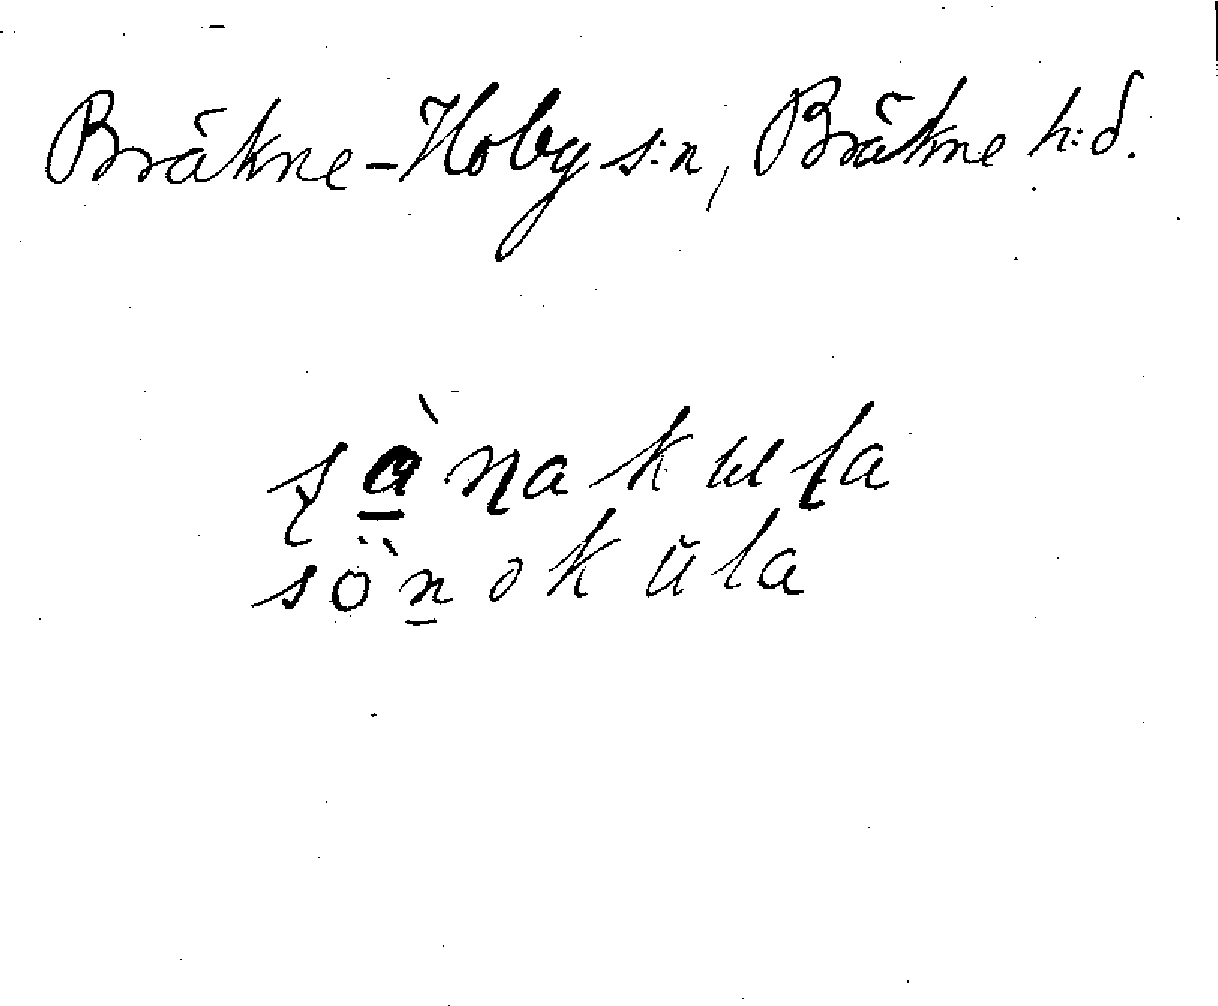 Bräkne-Hoby s:n, Bräkne h:d.
sànakula
sönokŭla